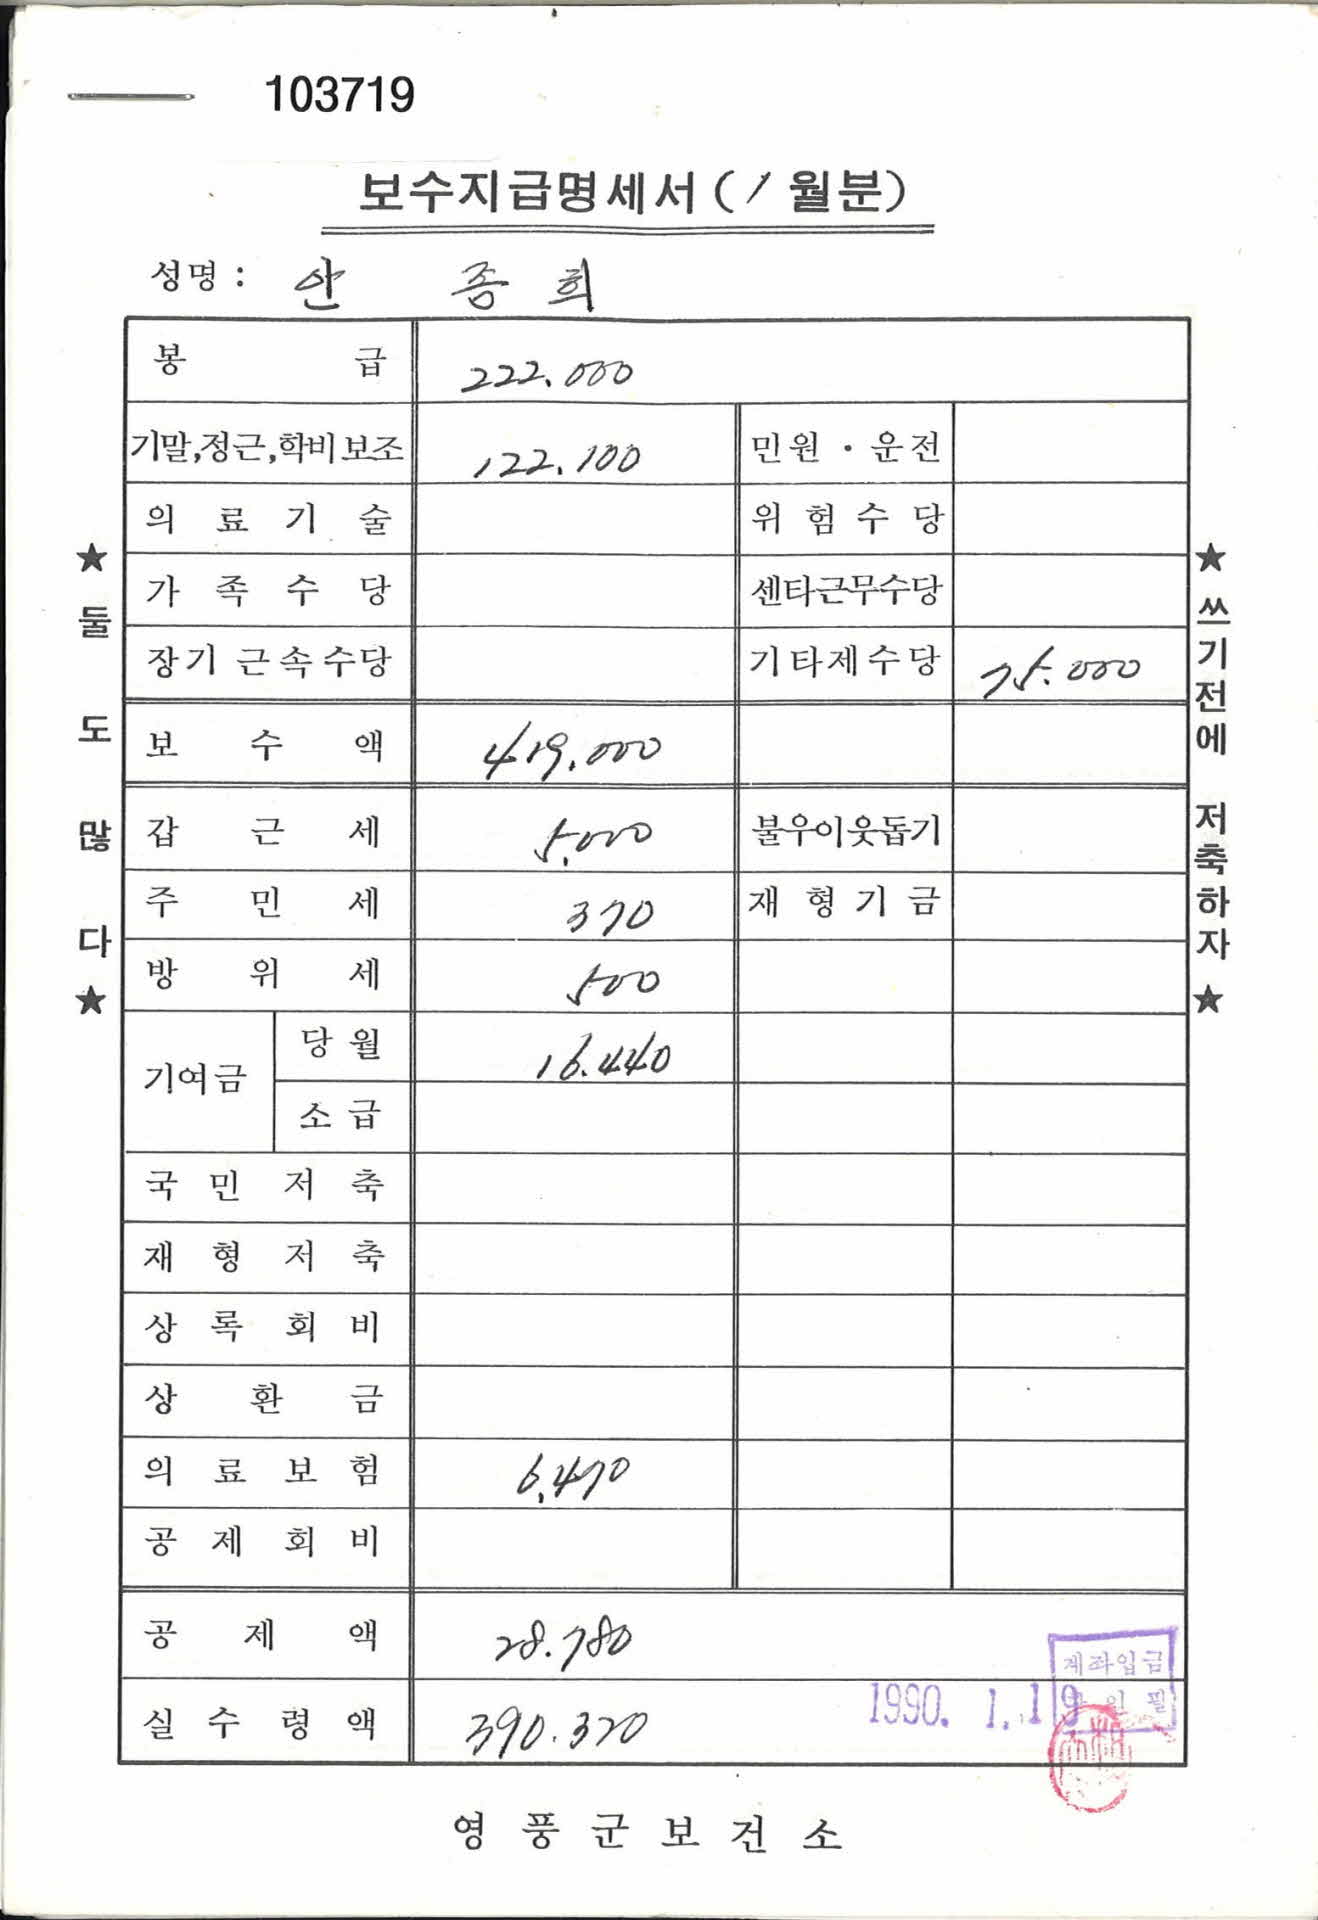 103719
보수지급명세서(1월분)
성명 : 안 종 희
봉 급 222.000
기말,정근,학비보조 122.100 민원 · 운전
의 료 기 술 위 험 수 당
가 족 수 당 센타근무수당
장기 근속수당 기타제수당 75.000
보 수 액 419.000
갑 근 세 5.000 불우이웃돕기
주 민 세 370 재 형 기 금
방 위 세 500
기여금 당 월 16.440
소 급
국 민 저 축
재 형 저 축
상 록 회 비
상 환 금
의 료 보 험 6.470
공 제 회 비
공 제 액 28.780
계좌입금
실 수 령 액 390.320 1990. 1. 19
영 풍 군 보 건 소
★ 둘 도 많 다 ★
★ 쓰기전에 저축하자 ★